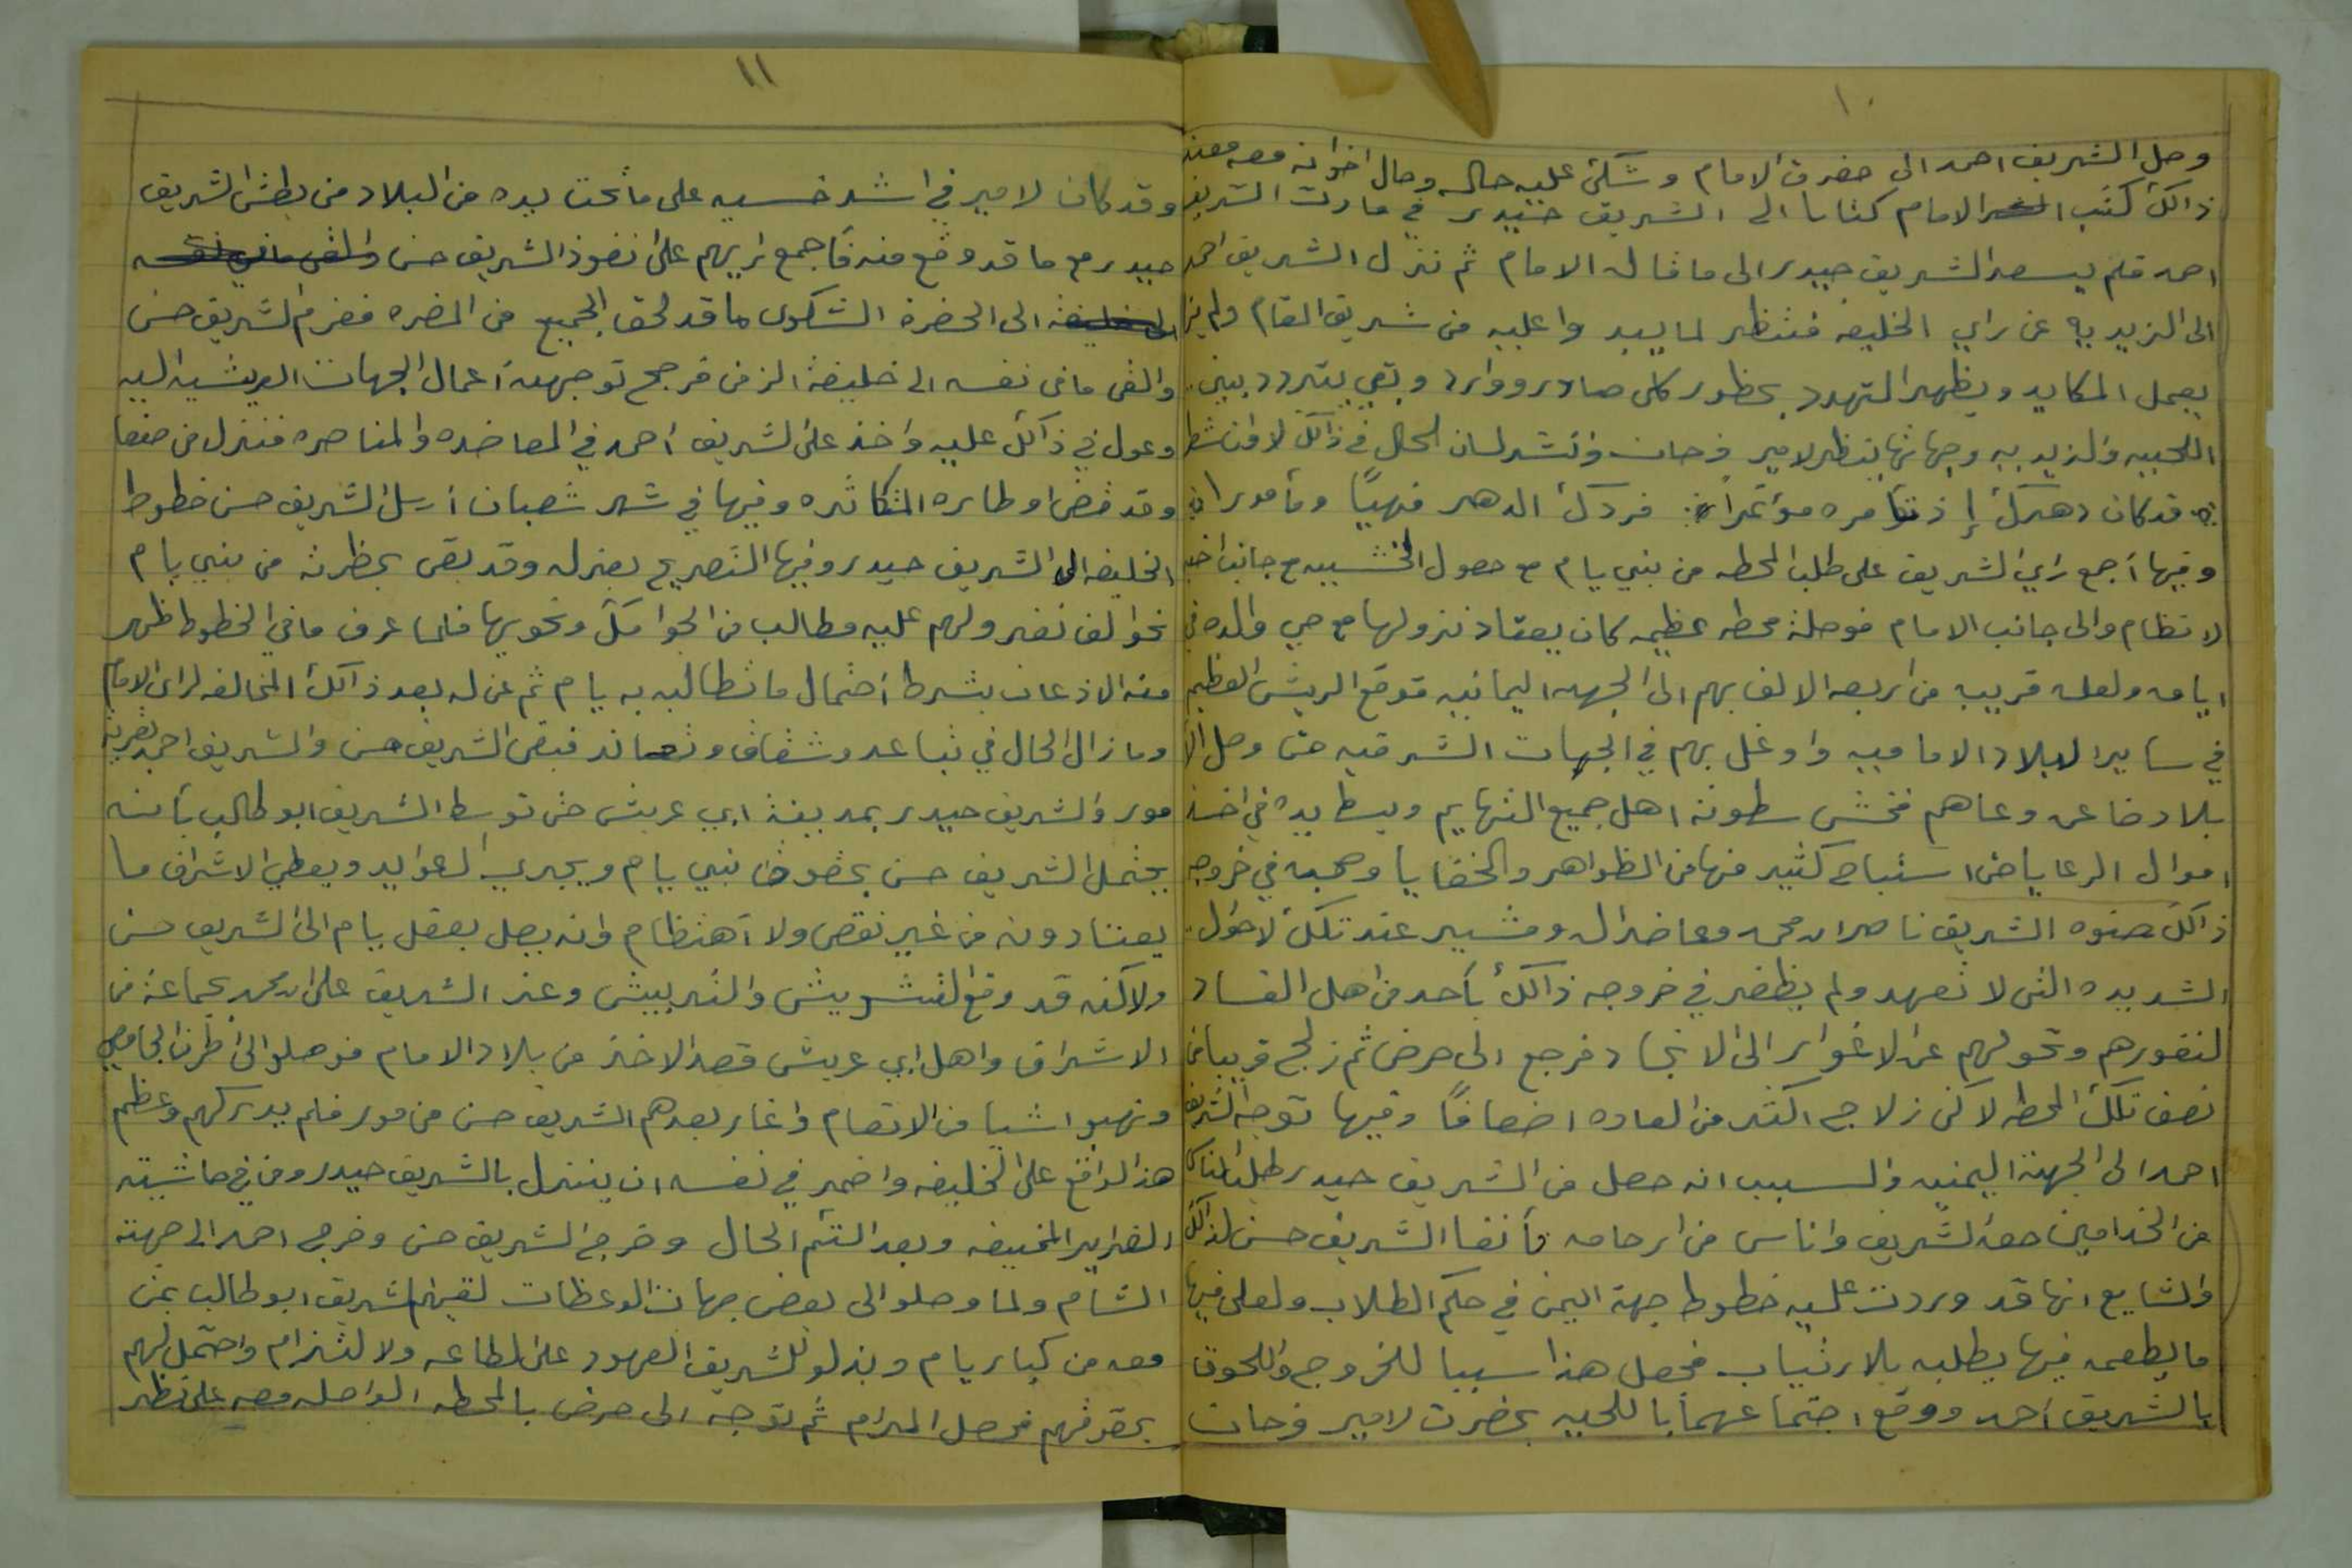 ١٠
وصل الشريف احمد الى حضرت الامام وشكى عليه حاله وحال اخوانه معه فعند
ذالك كتب الامام كتابا الى الشريف حيدر في مارت الشريف
احمد فلم يسعد الشريف حيدر الى ما قاله الامام ثم نزل الشريف احمد
الى الزيديه عن راي الخليفه فنتظر لما يبد واعليه من شريف المقام ولم يزل
يعمل المكايد ويظهر التهدد بحظور كل صادر ووارد وبقي يتردد بين
اللحيه والزيديه وجهاتها بنظر لامير فرحان وانشد لسان الحال في ذالك لاوان شطر
قد كان دهرك إذ تأمره مؤتمرا فردك الدهر منهيًا ومأمورا
وفيها أجمع راي الشريف على طلب المحطه من بني يام مع حصول الخشيه مع جانب اخيه
لانظام والى جانب الامام فوصلة محطه عظيمه كان يعتاد نزولها مع حي والده في
ايامه ولعله قريب من اربعه الالف بهم الى الجهه اليمانيه فوقع الريش العظيم
في ساير البلاد الاماميه واوغل بهم في الجهات الشرقيه حتى وصل الى
بلاد ضاعن وعاهم فخشى سطوته اهل جميع التهايم وبسط يده في اخذ
اموال الرعايا حتى استباح كثير منها من الظواهر والخفايا وصحبه في خروجه
ذالك صنوه الشريف ناصر ابن محمد وعاضد له ومشير عند تلك لاحوال
الشديده التى لا تعهد ولم يظفر في خروجه ذالك بأحد من اهل الفساد
لنفورهم وتحولهم عن الاغوار الى الانجاد فرجع الى حرض ثم زلج قريبا من
نصف تلك المحطه لاكن زلاج اكثر من العاده اضعافًا وفيها توجه الشريف
احمد الى الجهة اليمنيه والسبب انه حصل من الشريف حيدر طلب لناس
من الخدامين حق الشريف واناس من ارحامه فأنفا الشريف حسن لذالك
والشايع انها قد وردت عليه خطوط جهة اليمن في حكم الطلاب ولعلى فيها
ما يطعمه فيها يطلبه بلارتياب فحصل هذا سببا للخروج واللحوق
بالشريف أحمد ووقع اجتماعهما باللحيه بحضرت لامير فرحان
١١
وقد كان لامير في اشد خسيه على ما تحت يده من البلاد من بطش الشريف
حيدر مع ما قد وقع منه فأجمع رايهم على نفوذ الشريف حسن
الى الحضرة الشكوى ما قد لحق الجميع من المضره فعزم الشريف حسن
والقى ما في نفسه الى خليفة الزمن فرجح توجهه أعمال الجهات العريشيه اليه
وعول في ذالك عليه واخذ على الشريف أحمد في المعاضده والمناصره فنزل من صنعا
وقد قضى اوطاره المتكاثره وفيها في شهر شعبان أرسل الشريف حسن خطوط
الخليفه الى الشريف حيدر وفيها التصريح بعزله وقد بقى بحظرته من بني يام
نحو الف نفر ولهم عليه مطالب من الجوامك ونحويها فلما عرف ما في الخطوط ظهر
منه الاذعان بشرط أحتمال ما تطالبه به يام ثم عن له بعد ذالك المخالفه لراي الامام
وما زال الحال في تباعد وشقاق وتعاند فبقى الشريف حسن والشريف احمد بقرية
مور والشريف حيدر بمدينة ابي عريش حتى توسط الشريف ابو طالب بأنه
يحتمل الشريف حسن بحقوق بني يام ويجري العوايد ويعطي الاشراف ما
يعتادونه من غير نقص ولا أهتظام وانه يصل بعقل يام الى الشريف حسن
ولاكنه قد وقع التشويش والتربيش وعند الشريف على ابن محمد بجماعة من
الاشراف واهل ابي عريش قصد الاخذ من بلاد الامام فوصلوا الى اطراف الجامعي
ونهبو اشيا من الانعام واغار بعدهم الشريف حسن من مور فلم يدركهم وعظم
هذا الواقع على الخليفه واضمر في نفسه ان ينزل بالشريف حيدر ومن في حاشيته
الفزاير المخيفه وبعد التئم الحال وخرج الشريف حسن وخرج احمد الى جهة
الشام ولما وصلو الى بعض جهات الوعظات لقيهم الشريف ابو طالب بمن
معه من كبار يام وبذلو للشريف العهود على الطاعه ولالتزام واحتمل لهم
بحقوقهم فحصل المرام ثم توجه الى حرض بالمحطه الواصله معه على نظر